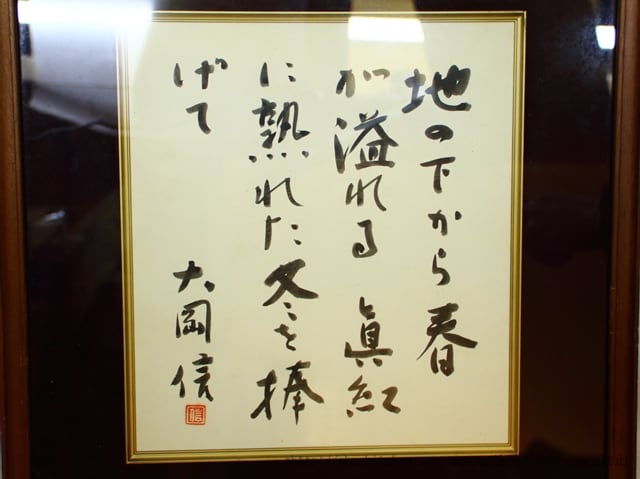 地の下から春
が溢れる 眞紅
に熟れた冬を捧
げて
大岡信
信